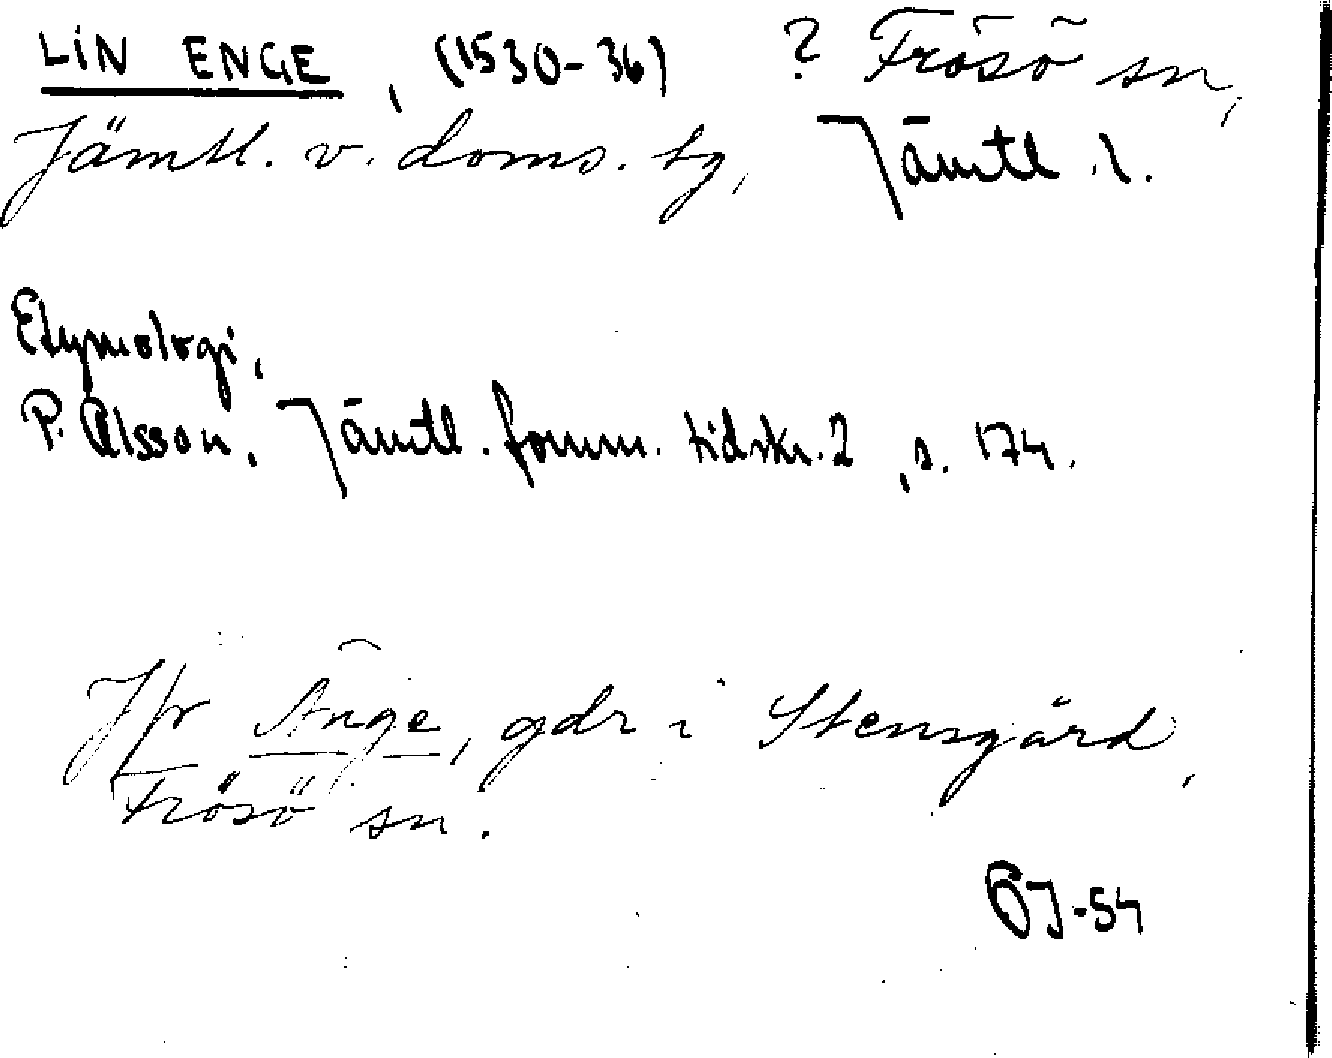 LIN ENGE, (1530-36) ? Frösö sn,
Jämtl. v. doms. tg, Jämtl. l.
Etymologi,
P. Olsson, Jämtl. fornm. tidskr. 2, s. 174.
Jfr Änge, gdr i Stensgärd,
Frösö sn.
ÖJ-54